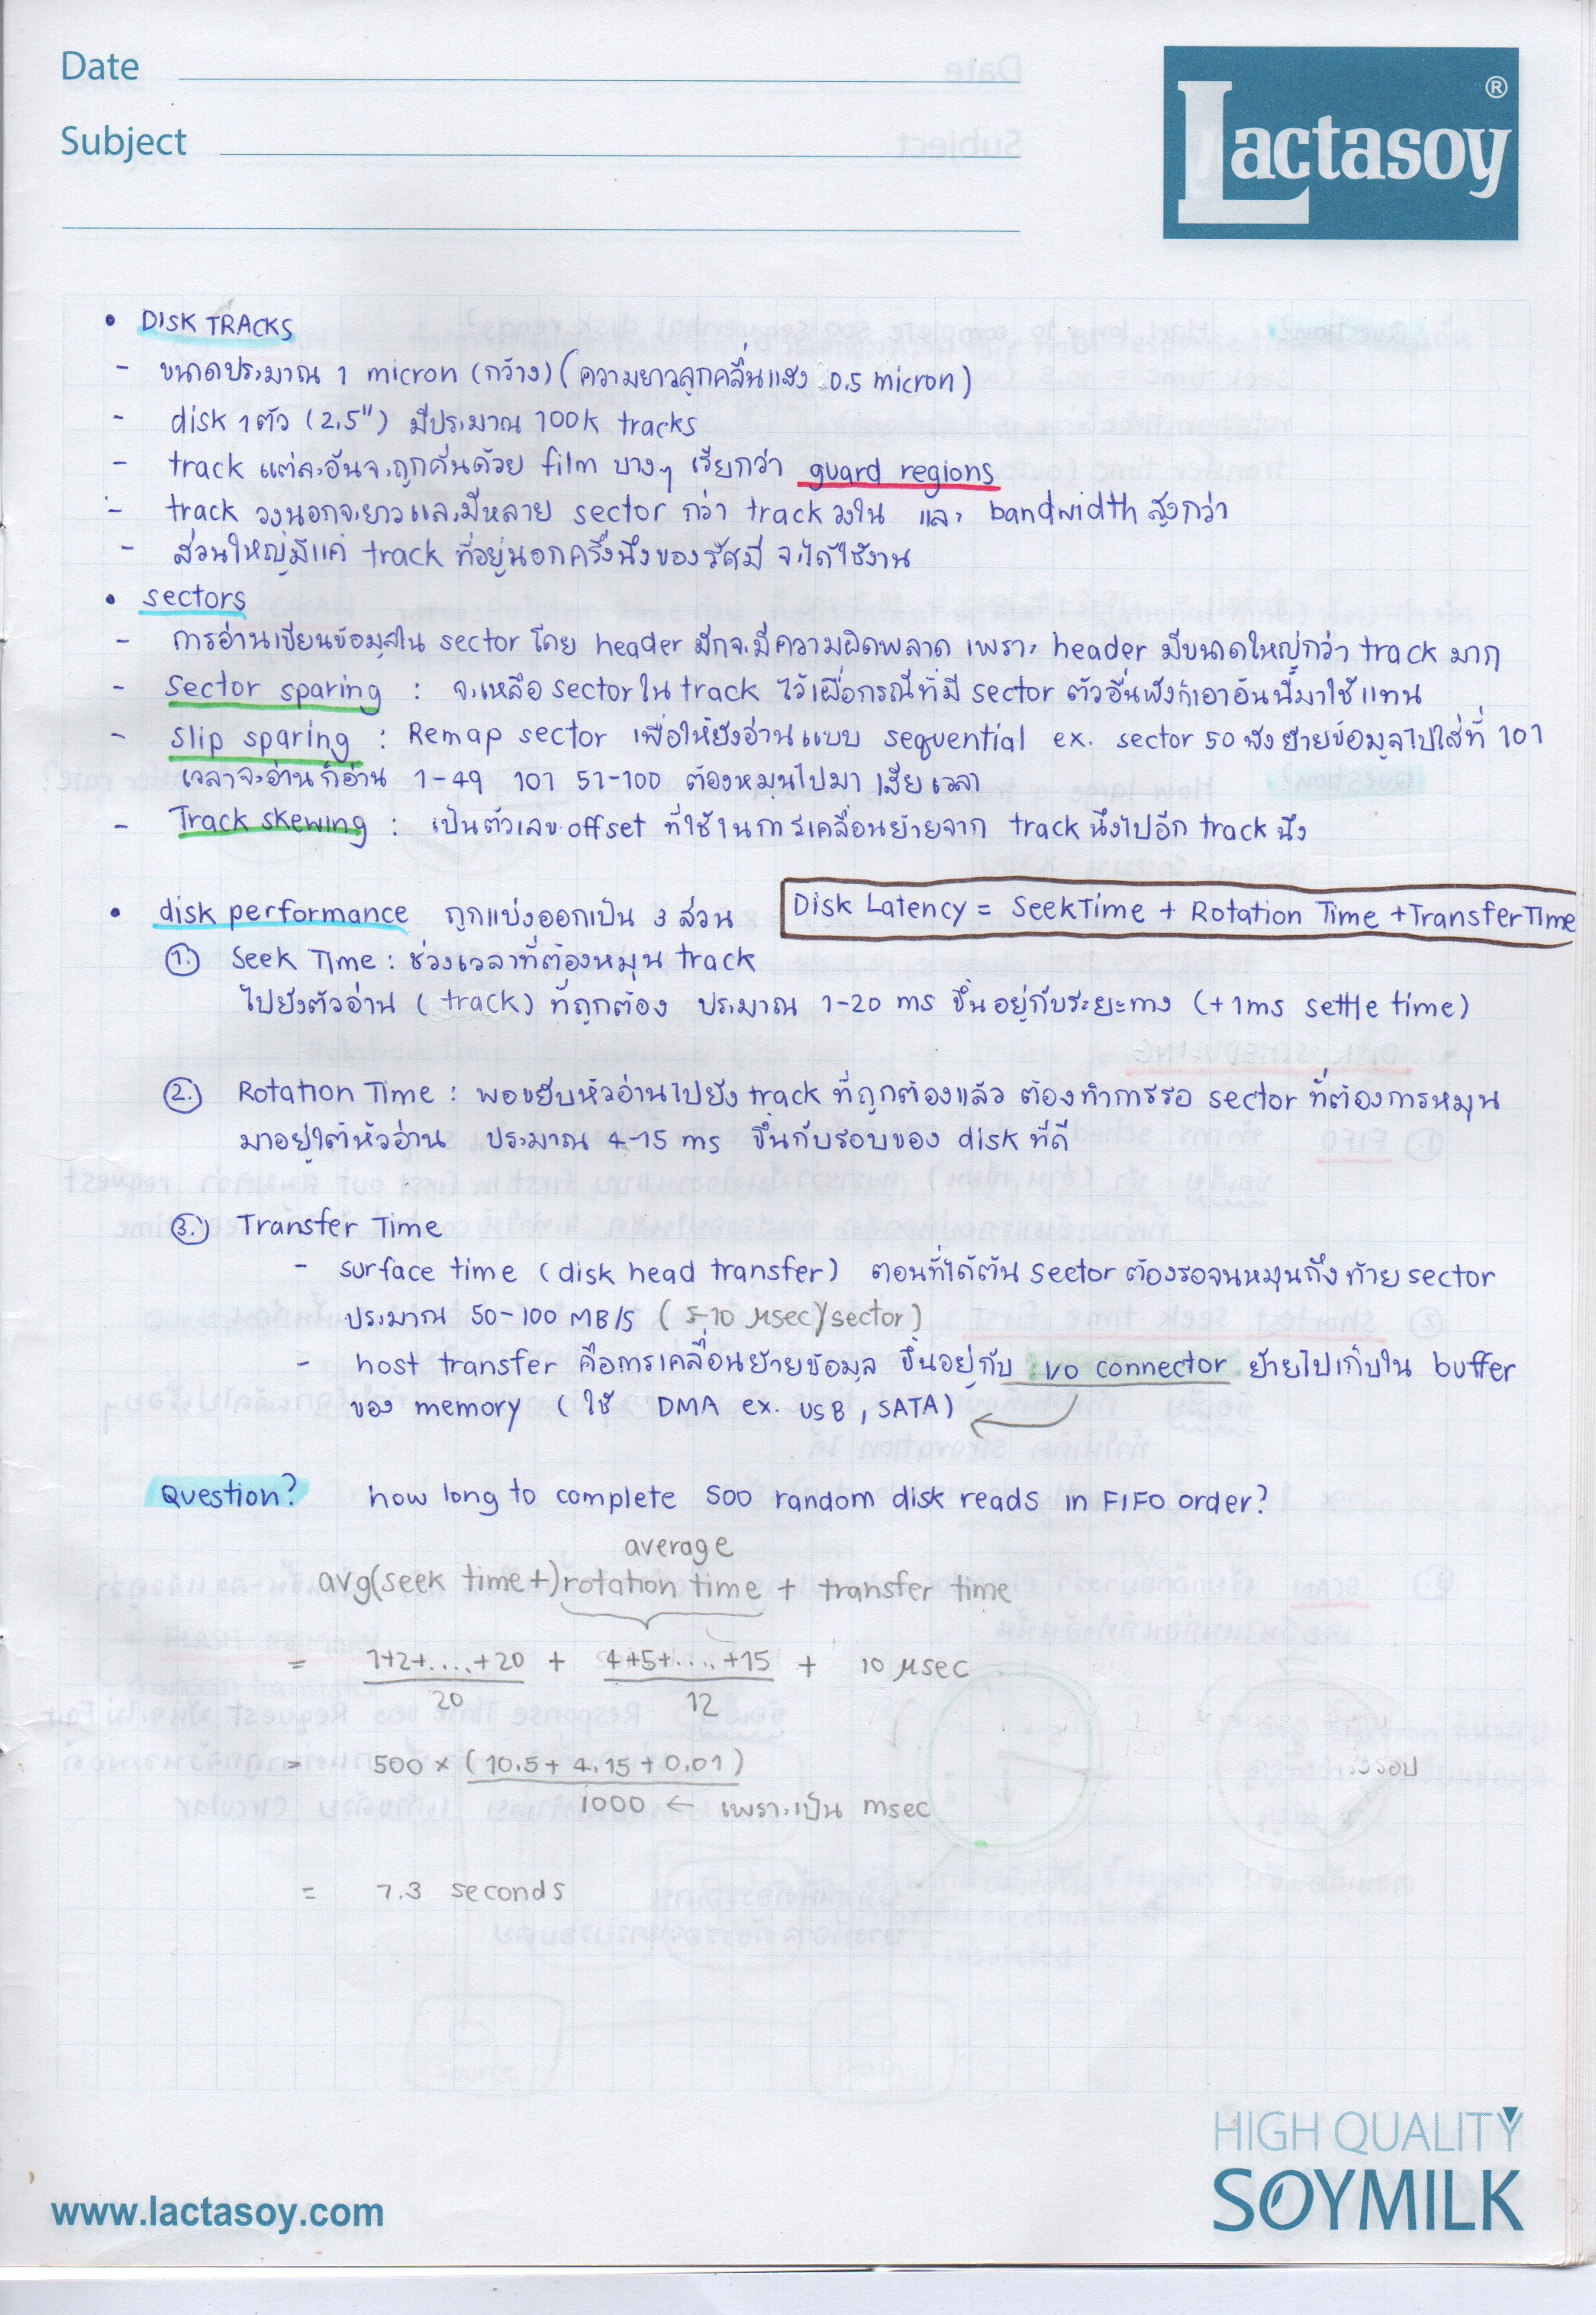 Date
Subject
Lactasoy®
• DISK TRACKS
- ขนาดประมาณ 1 micron (กว้าง) (ความยาวลูกคลื่นแสง 0.5 micron)
- disk 1 ตัว (2.5") มีประมาณ 100K tracks
- track แต่ละอันจะถูกคั่นด้วย film บางๆ เรียกว่า guard regions
- track วงนอกจะยาวและมีหลาย sector กว่า track วงใน และ bandwidth สูงกว่า
- ส่วนใหญ่มีแค่ track ที่อยู่นอกครึ่งนึงของรัศมี จะได้ใช้งาน
• sectors
- การอ่านเขียนข้อมูลใน sector โดย header มักจะมีความผิดพลาด เพราะ header มีขนาดใหญ่กว่า track มาก
- Sector sparing : จะเหลือ sector ใน track ไว้เผื่อกรณีที่มี sector ตัวอื่นพังก็เอาอันนี้มาใช้แทน
- slip sparing : Remap sector เพื่อให้ยังอ่านแบบ sequential ex. sector 50 พัง ย้ายข้อมูลไปใส่ที่ 101
เวลาจะอ่านก็อ่าน 1-49 101 51-100 ต้องหมุนไปมา เสียเวลา
- Track skewing : เป็นตัวเลข offset ที่ใช้ในการเคลื่อนย้ายจาก track นึงไปอีก track นึง
• disk performance ถูกแบ่งออกเป็น 3 ส่วน
Disk Latency = SeekTime + Rotation Time + TransferTime
1. Seek Time : ช่วงเวลาที่ต้องหมุน track
ไปยังตัวอ่าน (track) ที่ถูกต้อง ประมาณ 1-20 ms ขึ้นอยู่กับระยะทาง (+1ms settle time)
2. Rotation Time : พอขยับหัวอ่านไปยัง track ที่ถูกต้องแล้ว ต้องทำการรอ sector ที่ต้องการหมุน
มาอยู่ใต้หัวอ่าน ประมาณ 4-15 ms ขึ้นกับรอบของ disk ที่ดี
3. Transfer Time
- surface time (disk head transfer) ตอนที่ได้ต้น sector ต้องรอจนหมุนถึงท้าย sector
ประมาณ 50-100 MB/s (5-10 μsec/sector)
- host transfer คือการเคลื่อนย้ายข้อมูล ขึ้นอยู่กับ I/O connector ย้ายไปเก็บใน buffer
ของ memory (ใช้ DMA ex. USB, SATA)
Question? how long to complete 500 random disk reads in FIFO order?
average
avg(seek time+)rotation time + transfer time
= 1+2+....+20 + 4+5+....+15 + 10 μsec
20 12
= 500 × (10.5 + 4.15 + 0.01)
1000 ← เพราะเป็น msec
= 7.3 seconds
HIGH QUALITY
SOYMILK
www.lactasoy.com